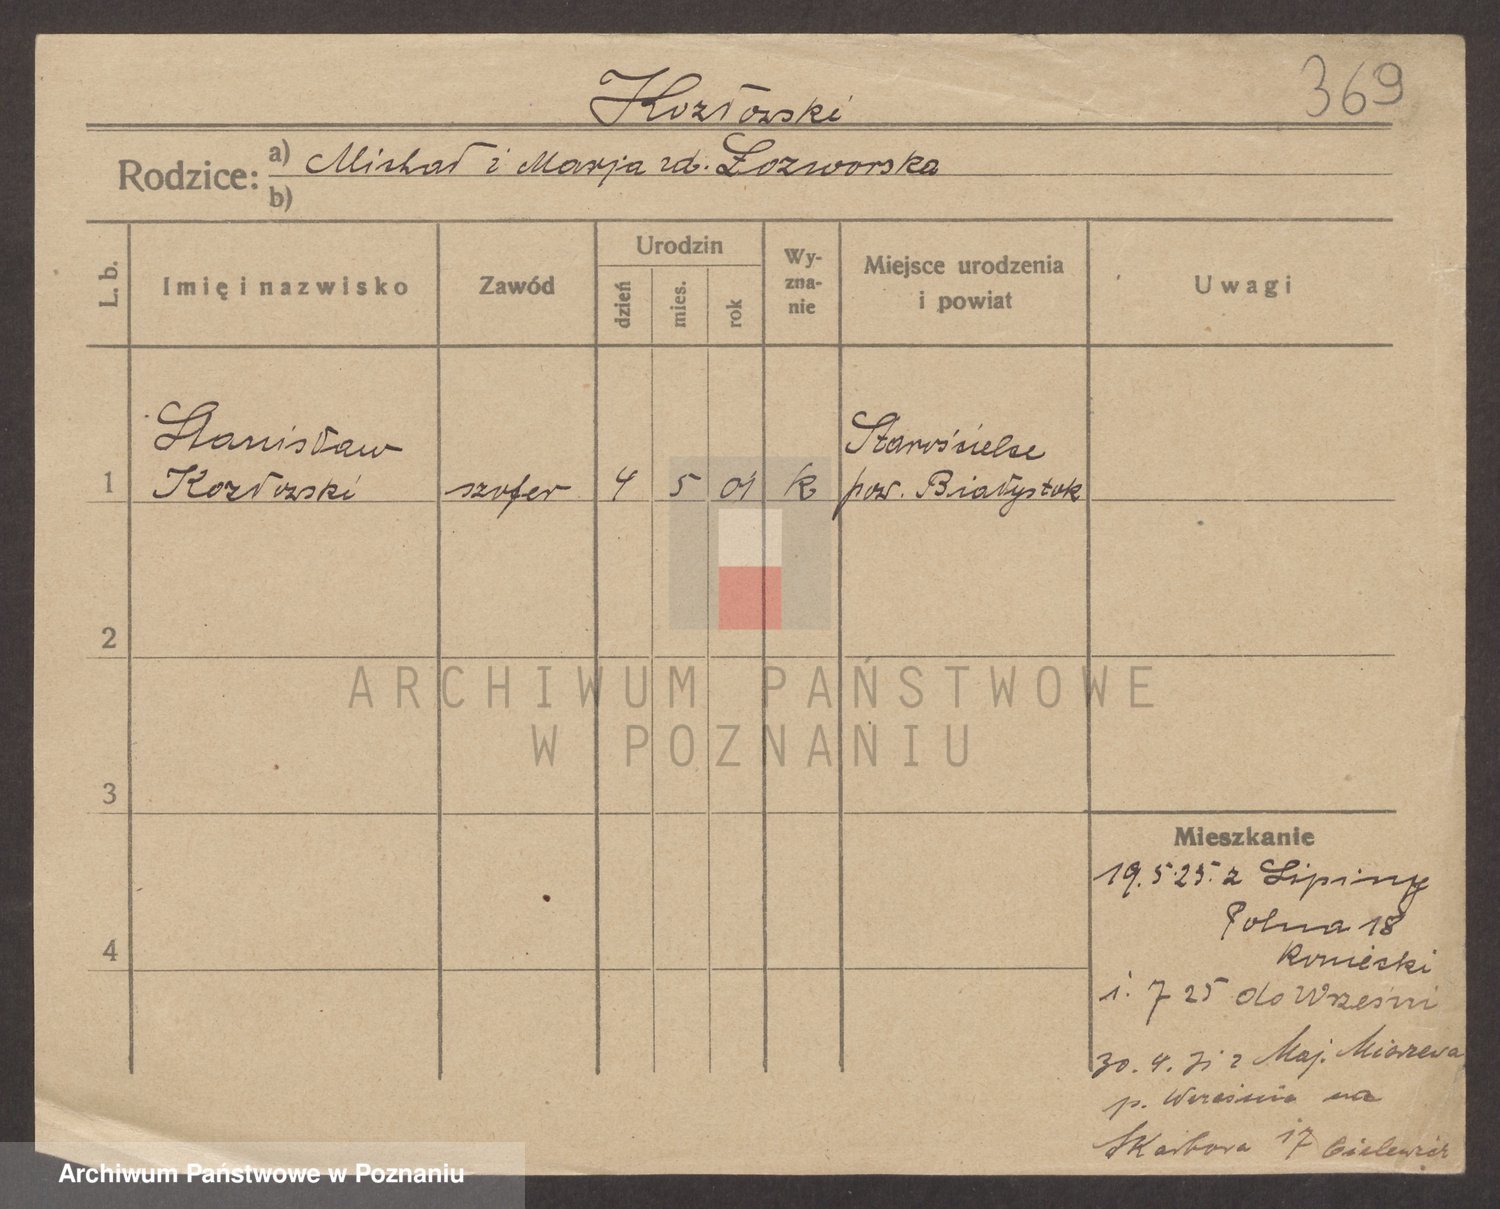 369
Kozłowski
Rodzice: a) Michał i Marja zd. Łozworska
b)
L. b. Imię i nazwisko Zawód Urodzin dzień mies. rok Wy-zna-nie Miejsce urodzenia i powiat Uwagi
Stanisław Starosielse
1 Kozłowski szofer 4 5 01 k pow. Białystok
2
ARCHIWUM PAŃSTWOWE
W POZNANIU
3
Mieszkanie
19.5.25. z Lipiny
Polna 18
4
Konieczki
1. 7 25 do Wrześni
30. 4. 31 z Maj. Mierzewa
p. Września na
Skarbowa 17
Archiwum Państwowe w Poznaniu